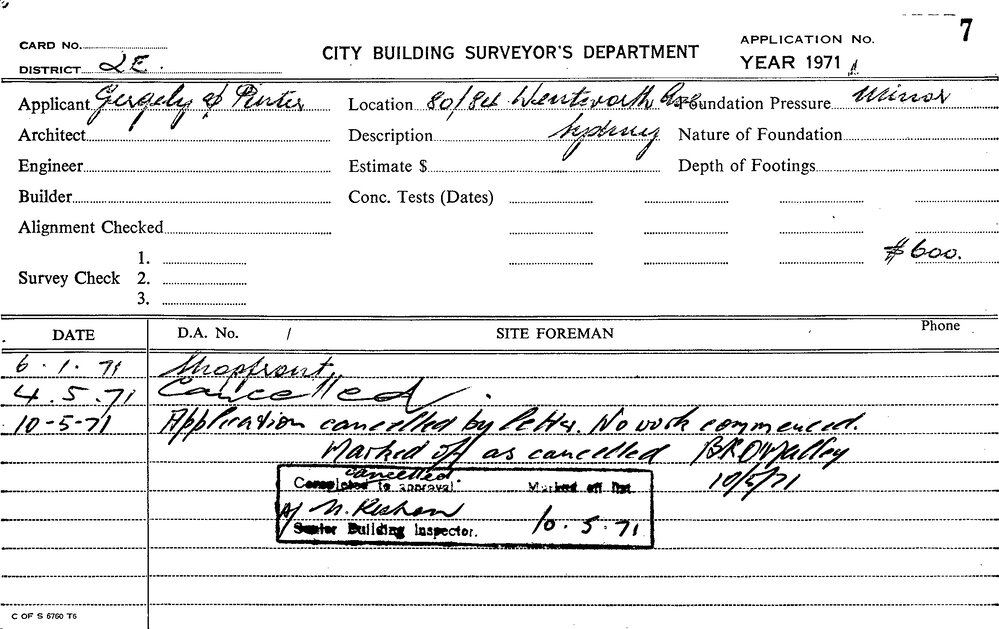 7
CARD No.
CITY BUILDING SURVEYOR'S DEPARTMENT
APPLICATION No.
DISTRICT 2E.
YEAR 1971
Applicant Gergely & Pinter
Location 80/84 Wentworth Ave
Foundation Pressure Minor
Architect
Description Sydney
Nature of Foundation
Engineer
Estimate $
Depth of Footings
Builder
Conc. Tests (Dates)
Alignment Checked
$600.
Survey Check 1.
2.
3.
DATE
D.A. No. /
SITE FOREMAN
Phone
6.1.71 Shopfront.
4.5.71 Cancelled.
10-5-71 Application cancelled by letter. No work commenced.
Marked off as cancelled
10/5/71
cancelled.
Completed to approval. Marked off list
A/ 10.5.71
Senior Building Inspector.
C OF S 5760 T6